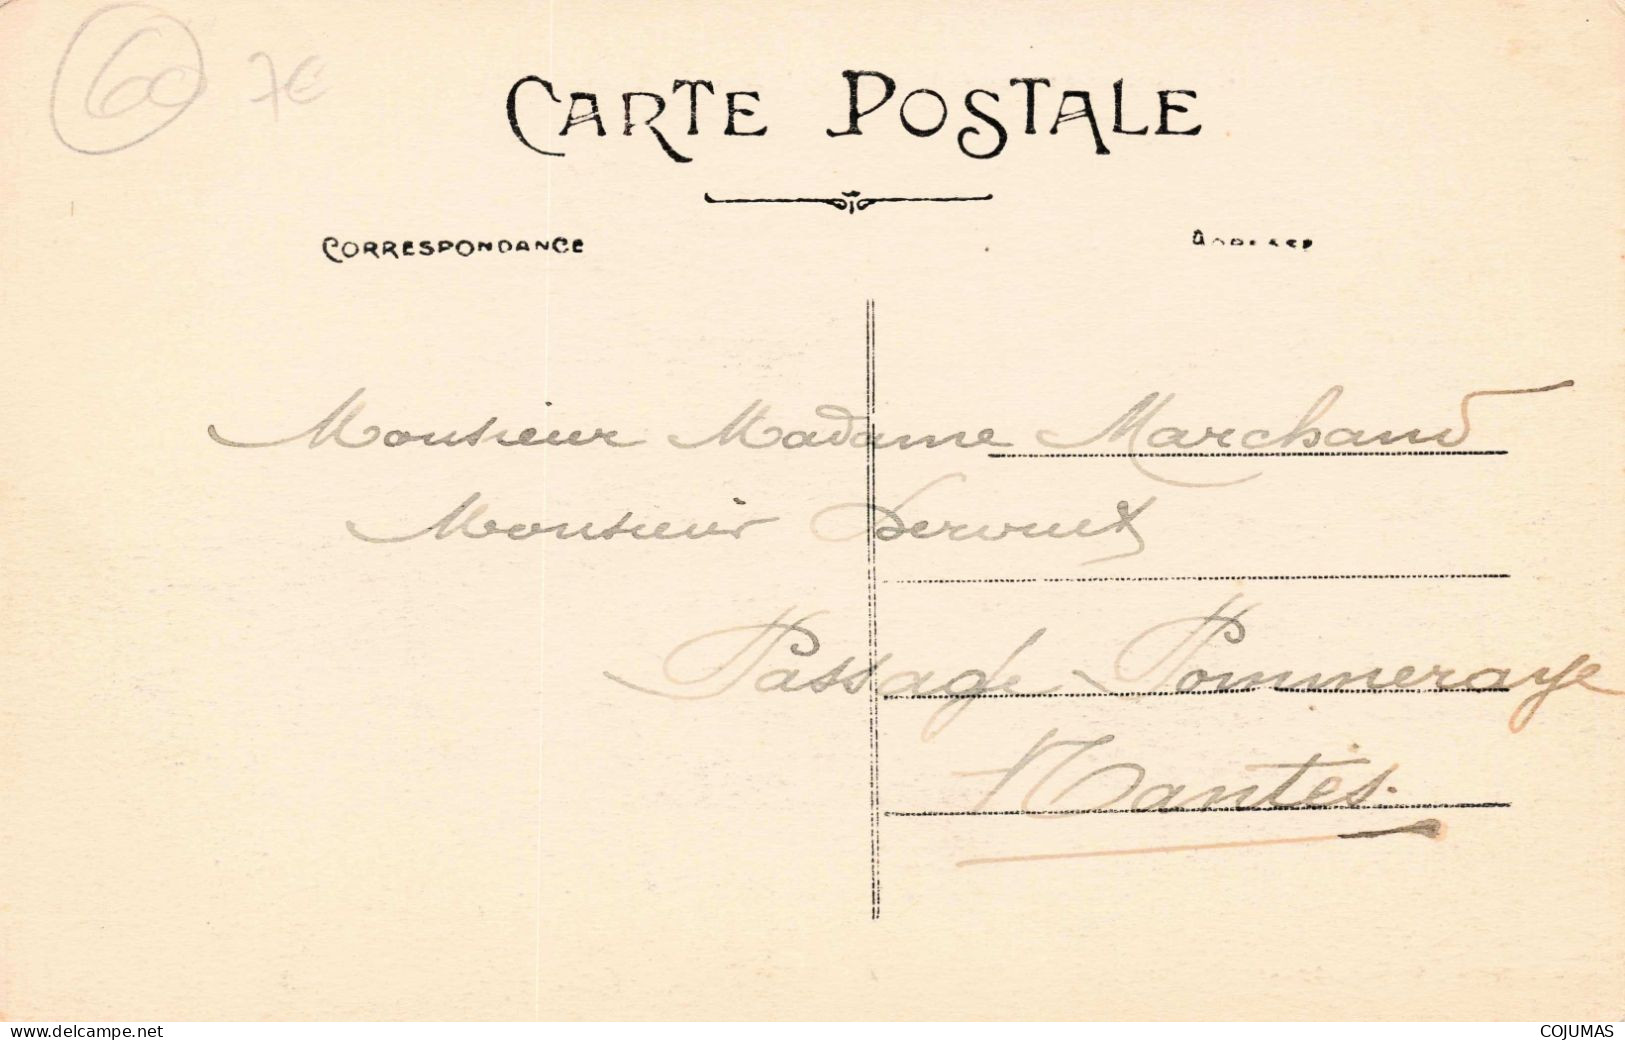 60 7€
CARTE POSTALE
CORRESPONDANCE
ADRESSE
Monsieur Madame Marchand
Monsieur
Passage Pommeraye
Nantes.
www.delcampe.net
COJUMAS